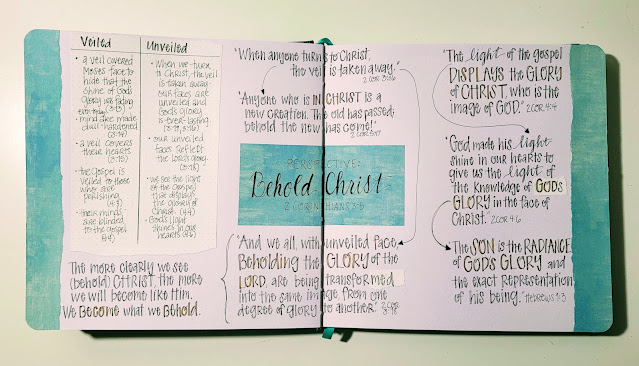 Veiled
• a veil covered
Moses face to
hide that the
shine of God's
glory was fading
(3:13)
• minds are made
dull-hardened
(3:14)
• a veil covers
their hearts
(3:15)
• the Gospel is
veiled to those
who are
perishing
(4:3)
• their minds
are blinded
to the gospel
(4:4)
Unveiled
• When we turn
to Christ, the veil
is taken away.
our faces are
unveiled and
God's glory
is ever-lasting
• our unveiled
faces reflect
the Lord's glory.
(3:18)
• we see the light
of the Gospel
that displays
the glory of
Christ. (4:4)
• God's light
shines in our
hearts (4:6)
The more clearly we see
(behold) CHRIST, the more
we will become like Him.
We Become what we Behold.
"When anyone turns to Christ,
the veil is taken away."
2 COR 3:16
"Anyone who is IN CHRIST is a
new creation. The old has passed;
behold the new has come!"
2 COR 5:17
PERSPECTIVE:
Behold Christ
2 CORINTHIANS 3-5
"And we all, with unveiled face
Beholding the GLORY of the
LORD, are being transformed
into the same image, from one
degree of glory to another." 2 COR
3:18
"The light of the gospel
DISPLAYS the GLORY
of CHRIST, who is the
image of GOD." 2 COR 4:4
"God made his light
shine in our hearts to
give us the light of
the knowledge of GOD'S
GLORY in the face of
Christ." 2 COR 4:6
"The SON is the RADIANCE
of GOD'S GLORY and
the exact representation
of his being." Hebrews 1:3